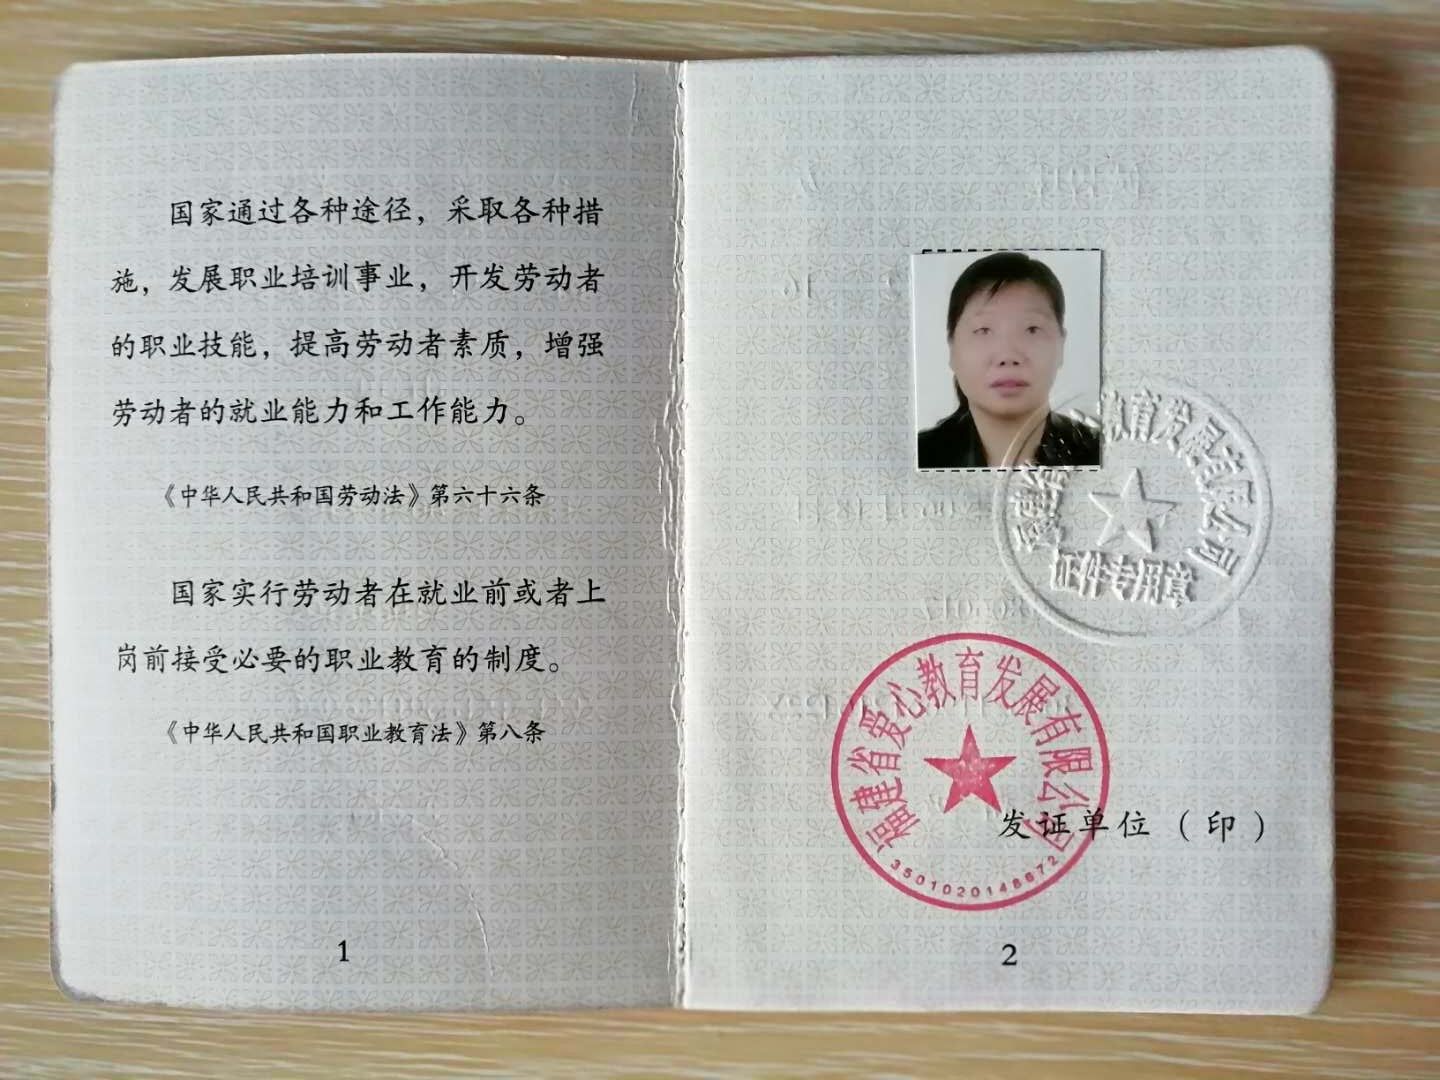 国家通过各种途径，采取各种措
施，发展职业培训事业，开发劳动者
的职业技能，提高劳动者素质，增强
劳动者的就业能力和工作能力。
《中华人民共和国劳动法》第六十六条
国家实行劳动者在就业前或者上
岗前接受必要的职业教育的制度。
《中华人民共和国职业教育法》第八条
1
福建省爱心教育发展有限公司
证件专用章
福建省爱心教育发展有限公司
3501020148672
发证单位（印）
2